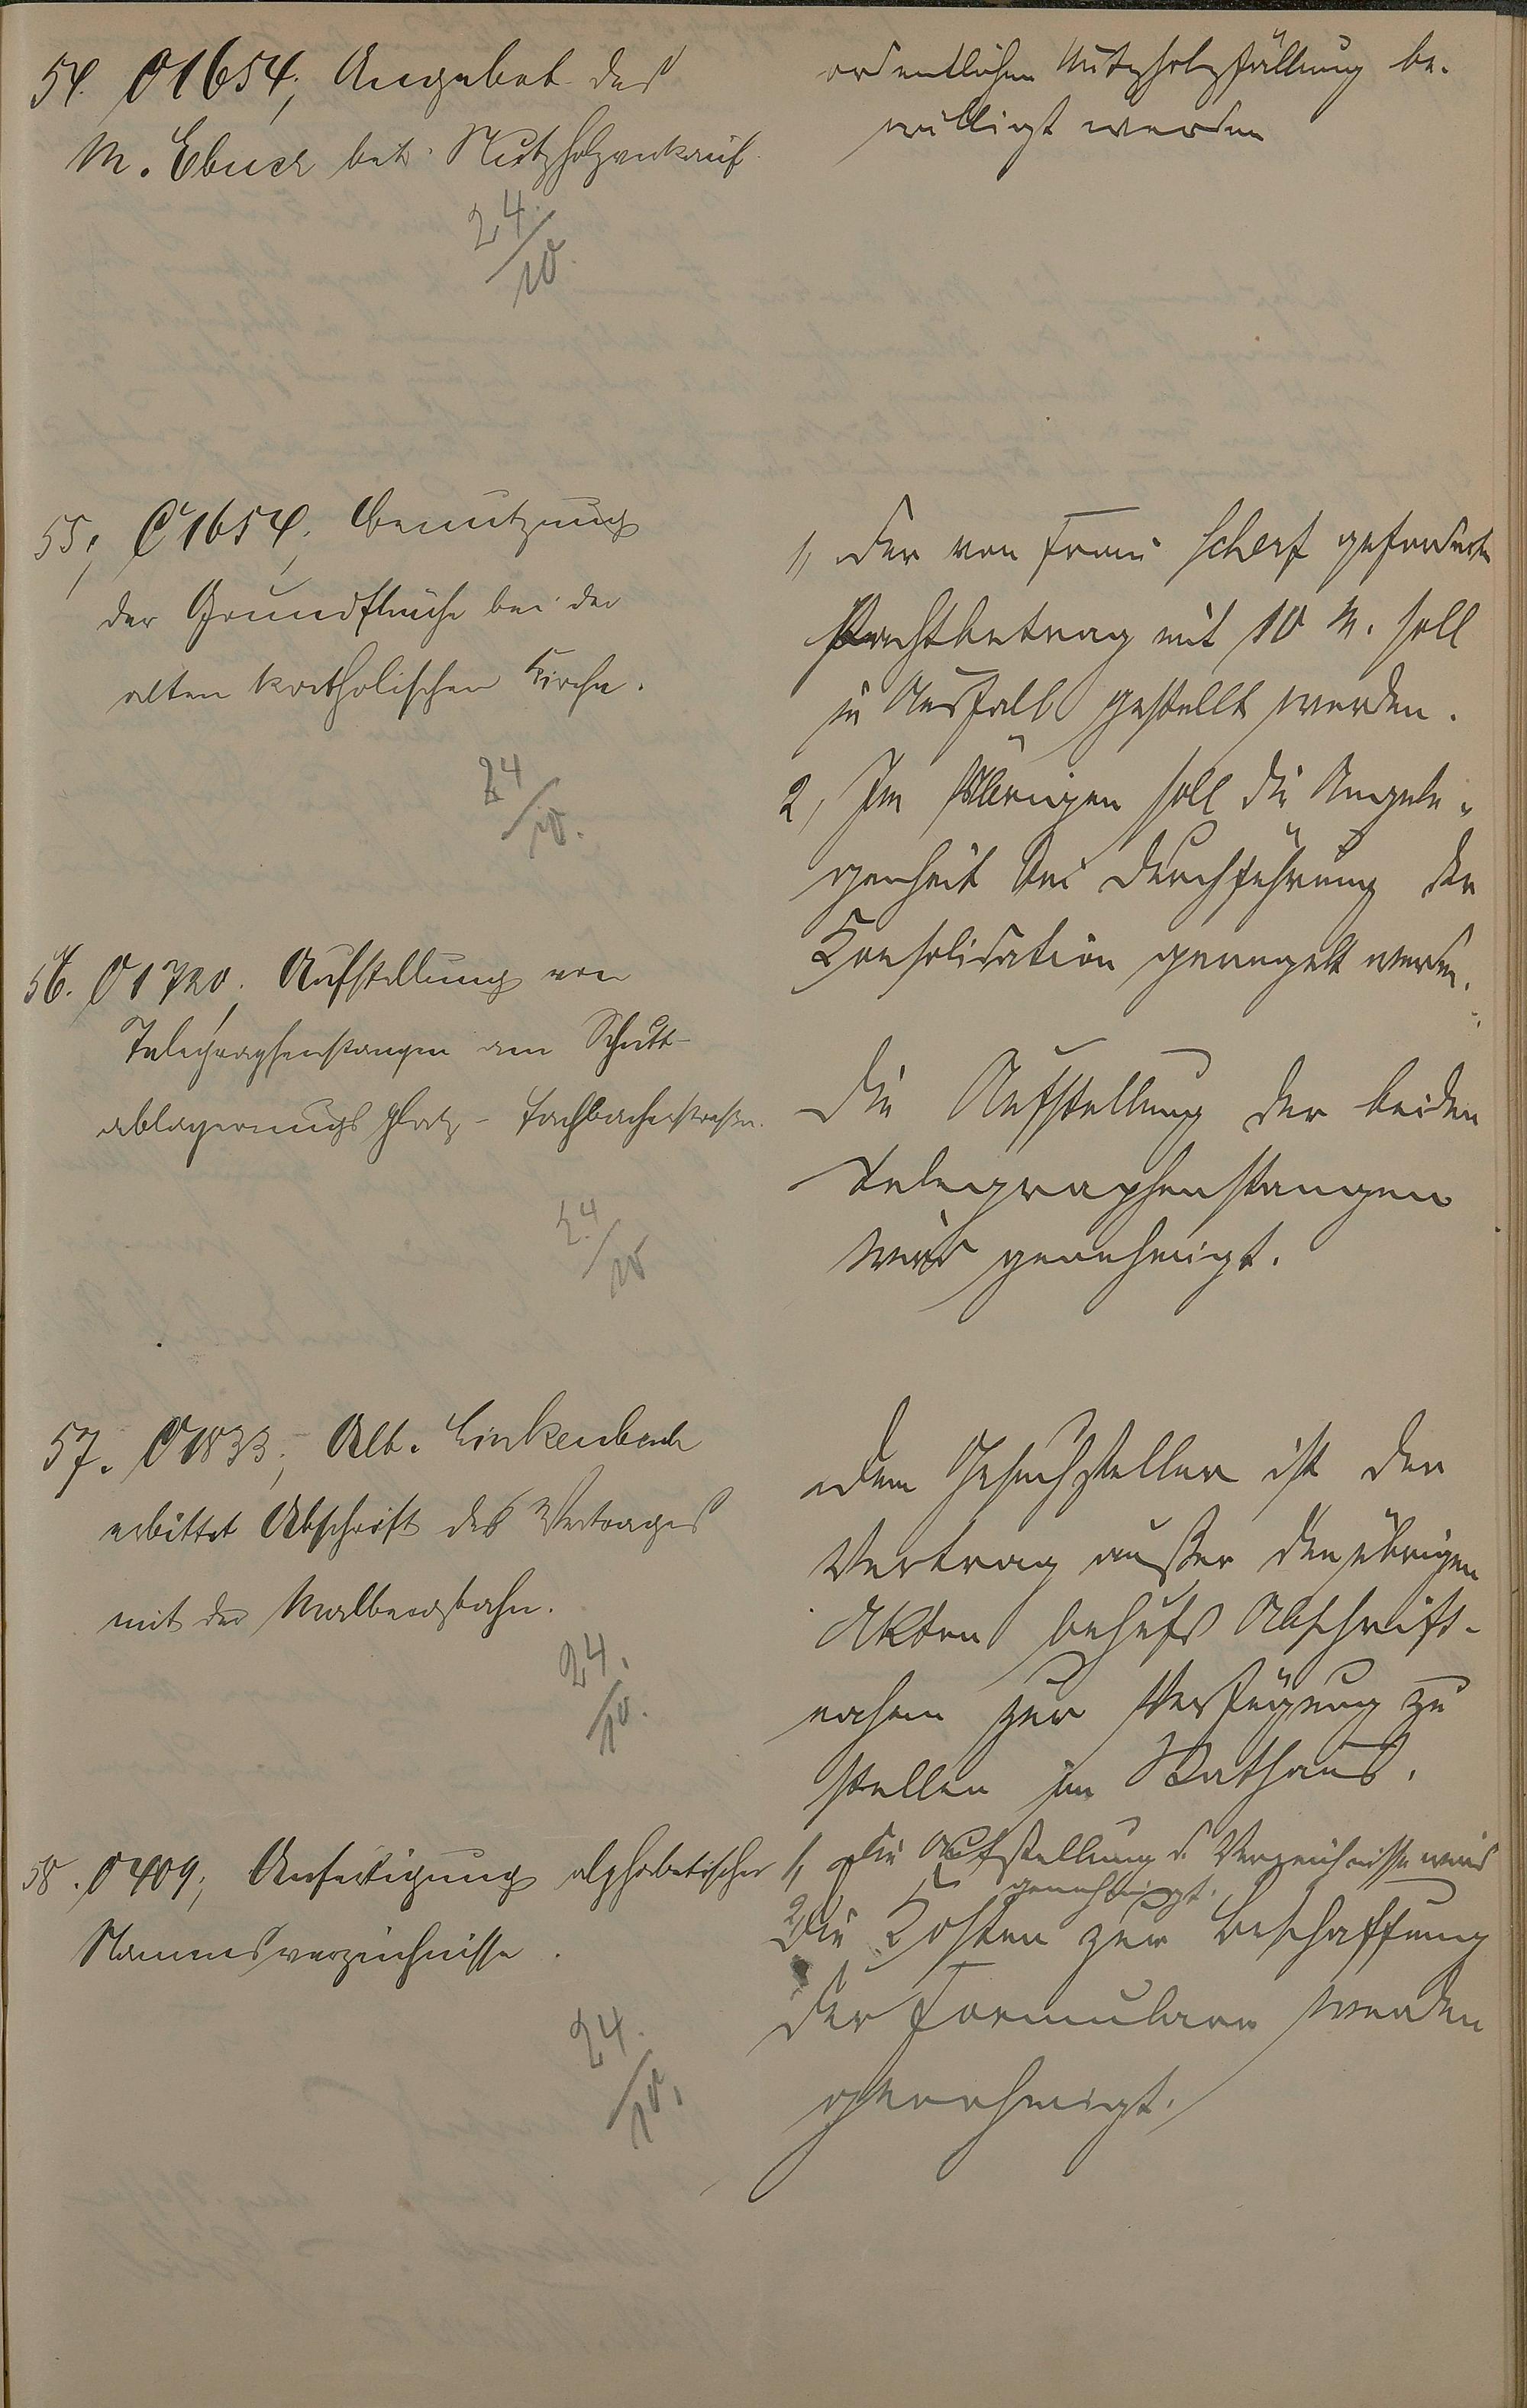 54. O 1654; Angebot des
M. Ebner betr. Nutzholzankauf.
24./10.
ordentlichen Nutzholzfällung be-
willigt werden
55; C 1654; Benutzung
der Grundfläche bei der
alten katholischen Kirche.
24/10.
1, Der von Frau Scherf geforderte
Pachtbetrag mit 10 M. soll
in Ausfall gestellt werden.
2, Im Übrigen soll die Angele-
genheit bei Durchführung der
Konsolidation geregelt werden.
56. O 1720; Aufstellung von
Telegraphenstangen am Schutt-
ablagerungsplatz - Fachbacherstraße.
24/10
Die Aufstellung der beiden
Telegraphenstangen
wird genehmigt.
57. O 1833; Alb. Linkenbach
erbittet Abschrift des Vertrages
mit der Malbergbahn.
24./10.
Dem Gesuchsteller ist der
Vertrag außer den übrigen
Akten behufs Abschrift-
nahme zur Verfügung zu
stellen im Rathaus.
58. O 409; Anfertigung alphabetischer
Namensverzeichnisse.
24./10.
1, Die Aufstellung d. Verzeichnisse wird
genehmigt.
2, Die Kosten zur Beschaffung
der Formulare werden
genehmigt.